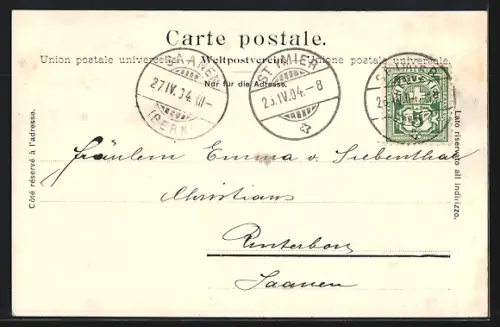 Carte postale.
Union postale universelle. Weltpostverein. Unione postale universale.
Nur für die Adresse.
SAANEN
27.IV.04. III-
(BERN)
ST IMIER
23.IV.04.-8
Côté réservé à l'adresse.
Lato riservato all indirizzo.
HELVETIA
5
Fräulein Emma v. Siebenthal
Christians
Saanen